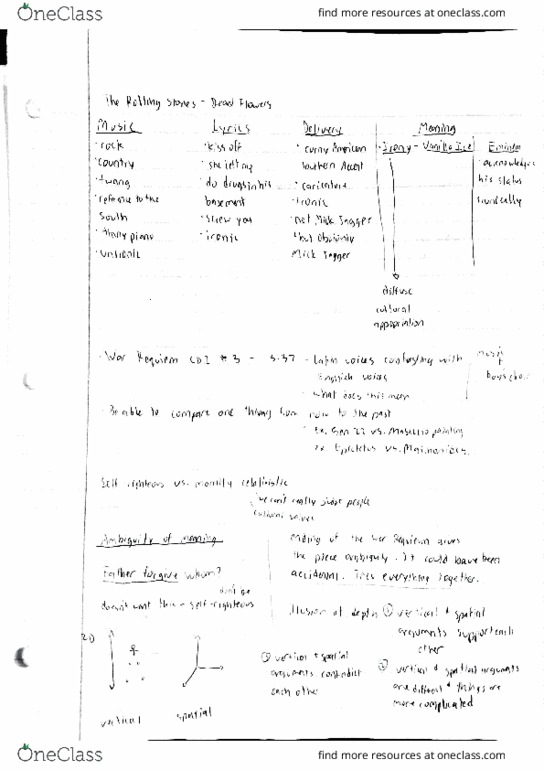 OneClass
find more resources at oneclass.com
The Rolling Stones - Dead Flowers
Music
Lyrics
Delivery
Meaning
· rock
· country
· twang
· reference to the
South
piano
· kiss off
· she left me
· do drugs in his
basement
· screw you
· ironic
· corny American
Southern Accent
· caricature
· ironic
· not Mick Jagger
but obviously
Mick Jagger
· Irony - Vanilla Ice
Eminem
acknowledges
his status
ironically
diffuse
cultural
appropriation
- War Requiem CD1 #3 - 5:37 - Latin voices contrasting with
English voices
- what does this mean
music
boys choir
- Be able to compare one thing from now to the past
ex. Gen 22 vs. Masaccio painting
ex. Epictetus vs. Maimonides
Self righteous vs. morally relativistic
we can't really judge people
cultural values
Ambiguity of meaning
Father forgive whom?
don't be
doesn't want this - self-righteous
ending of the War Requiem gives
the piece ambiguity. It could have been
accidental. Ties everything together.
illusion of depth ① vertical + spatial
arguments support each
other
2D
vertical
spatial
② vertical + spatial
arguments contradict
each other
③ vertical + spatial arguments
are different + things are
more complicated
OneClass
find more resources at oneclass.com